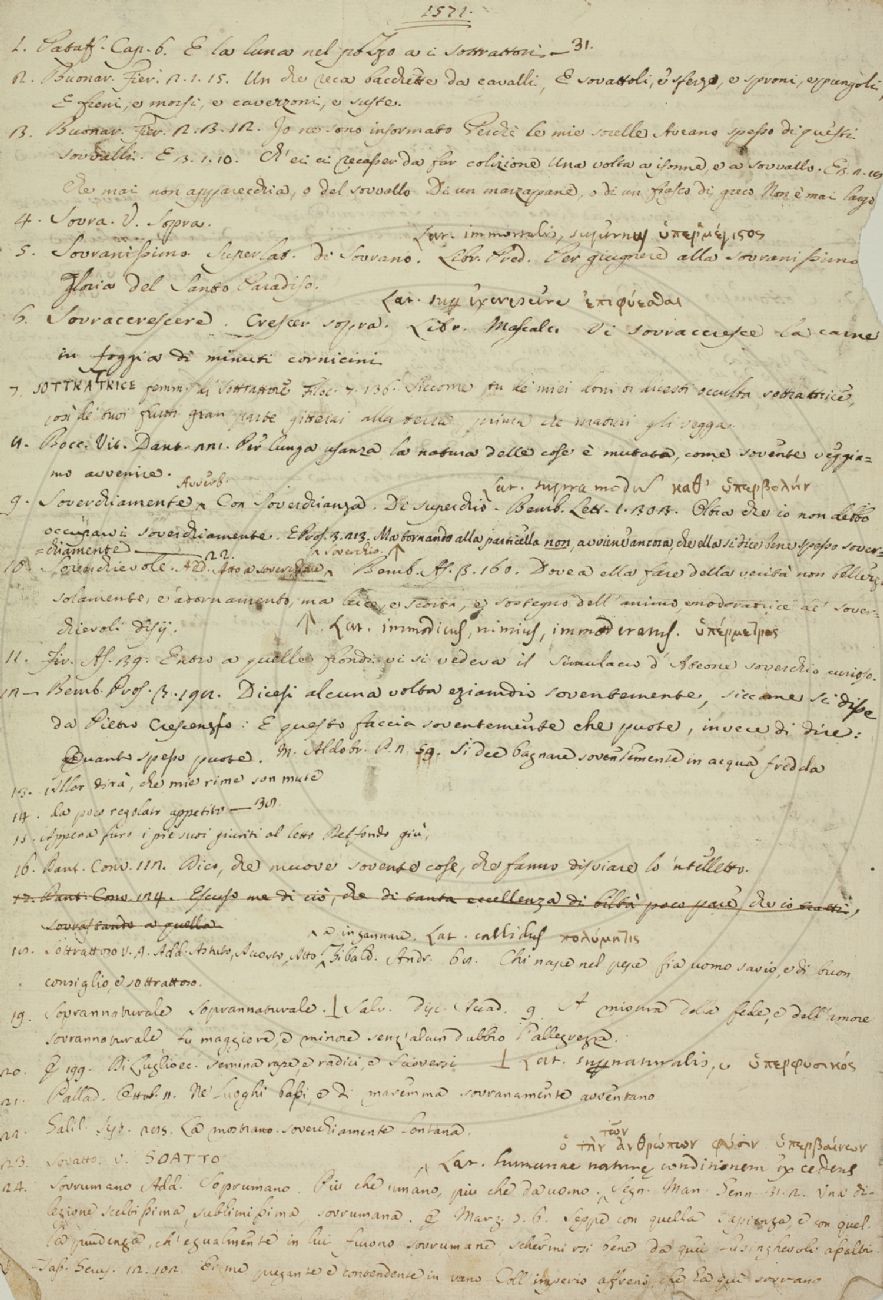 1571.
1. Pataff. Cap. 6. E la luna nel pozzo a i sottrattori — 31.
2. Buonar. Fier. 2. 1. 15. Un che reca bacchette da cavalli, E sovattoli, e sferze, e sproni, e pungoli,
E freni, e morsi, e cavezzoni, e suste.
3. Buonar. Fier. 2. 3. 12. Io non sono informato Perchè le mie sorelle Aveano spesso di questi
sovvalli. E 3. 1. 10. Ch' ei ci recasser da far colizione Una volta a isonne, e a sovvallo.
Che mai non apparecchia, o del sovvallo Di un marzapane, o di un fiasco di greco Non è mai largo
4. Sovra. V. Sopra.
Lat. immortalis, ὑπερμέγιστος
5. Sovranissimo Superlat. di Sovrano. Libr. Pred. Per giugnere alla sovranissima
gloria del Santo Paradiso.
Lat. ἐπιφύεσθαι
6. Sovraccrescere. Crescer sopra. Libr. Mascalc. Vi sovraccresce la carne
in foggia di minuti cornicini
7. SOTTRATTRICE femm. di Sottrattore Filoc. 7. 136. Siccome tu de' miei doni ti avesti occulta sottrattrice,
così de' tuoi frutti gran parte gitterai alla terra, prima che maturi gli vegga.
8. Bocc. Vit. Dant. 221. Per lunga usanza la natura delle cose è mutata, come sovente veggia-
mo avvenire.
Avverb. Lat. supra modum καθ' ὑπερβολήν
9. Soverchiamente Con Soverchianza. Di superchio. Bemb. Lett. 1. Oltra che io non debbo
occuparvi soverchiamente. E Pros. 3. 213. Ma tornando alla particella non, avviene ancora, che ella si dice bene spesso sover-
chiamente — 22.
soverchio
10. Soverchievole. Add. Atto a soverchiare Bemb. As. 3. 160. Dovea ella fare della verità non
solamente, e adornamento, ma luce, e scorta, e sostegno dell' animo, e moderatrice de' sover-
chievoli disij. Lat. immodicus, nimius, immoderatus. ὑπέρμετρος
11. Fir. As. 39. Entro a quelle frondi vi si vedeva il simulacro d' Ateone soverchio curioso.
12. Bemb. Pros. 3. Dicesi alcuna volta eziandio soventemente, siccome si disse
da Pietro Crescenzo: E questo faccia soventemente che puote, invece di dire:
Quanto spesso puote. M. Aldobr. P. N. 59. Si dee bagnare soventemente in acqua fredda
13. Allor dirà, che mie rime son mute
14. da poco regolato appetito — 38.
15. Appena furo i piè suoi giunti al letto Del fondo giù,
16. Dant. Conv. 112. Dico, che muove sovente cose, che fanno disviare lo 'ntelletto.
17. Dant. Conv. 124. Escuso me di ciò, che di tanta eccellenza di biltà poco pare, che io tratti,
sovrastando a quella
a ingannare. Lat. callidus πολύμητις
18. Sottrattoso V. A. Add. Astuto, Accorto, Atto Andr. 62. Chi nasce nel pesce fia uomo savio, e di buon
consiglio, e sottrattoso.
19. Soprannaturale Soprannaturale. Salv. Disc. Accad. 9. A misura della fede, e dell'amore
sovrannaturale fu maggiore, e minore senz'alcun dubbio l'allegrezza.
20. E 199. Di Luglio ec. semina rape e radici, e sciaversi Lat. supernaturalis, ὑπερφυσικός
21. Pallad. Ottob. 11. Ne' luoghi bassi, e di maremma sovranamente avventano
22. Galil. Sist. La mostrano soverchiamente lontana.
ὁ τὴν τῶν ἀνθρώπων φύσιν ὑπερβαίνων
23. Sovatto. V. SOATTO
Lat. humanae naturae conditionem excedens
24. Sovrumano Add. Soprumano. Più che umano, più che da uomo. Segn. Mann. Genn. 31. 2. Una di-
lezione sceltissima, sublimissima, sovrumana. E Marz. 7. 6. Seppe con quella sapienza, e con quel-
la prudenza, ch' egualmente in lui furono sovrumane, schermirsi bene da quei lusinghevoli assalti.
12. 102. Ei me pregante e contendente in vano Coll' imperio affrenò, che ha qui sovrano